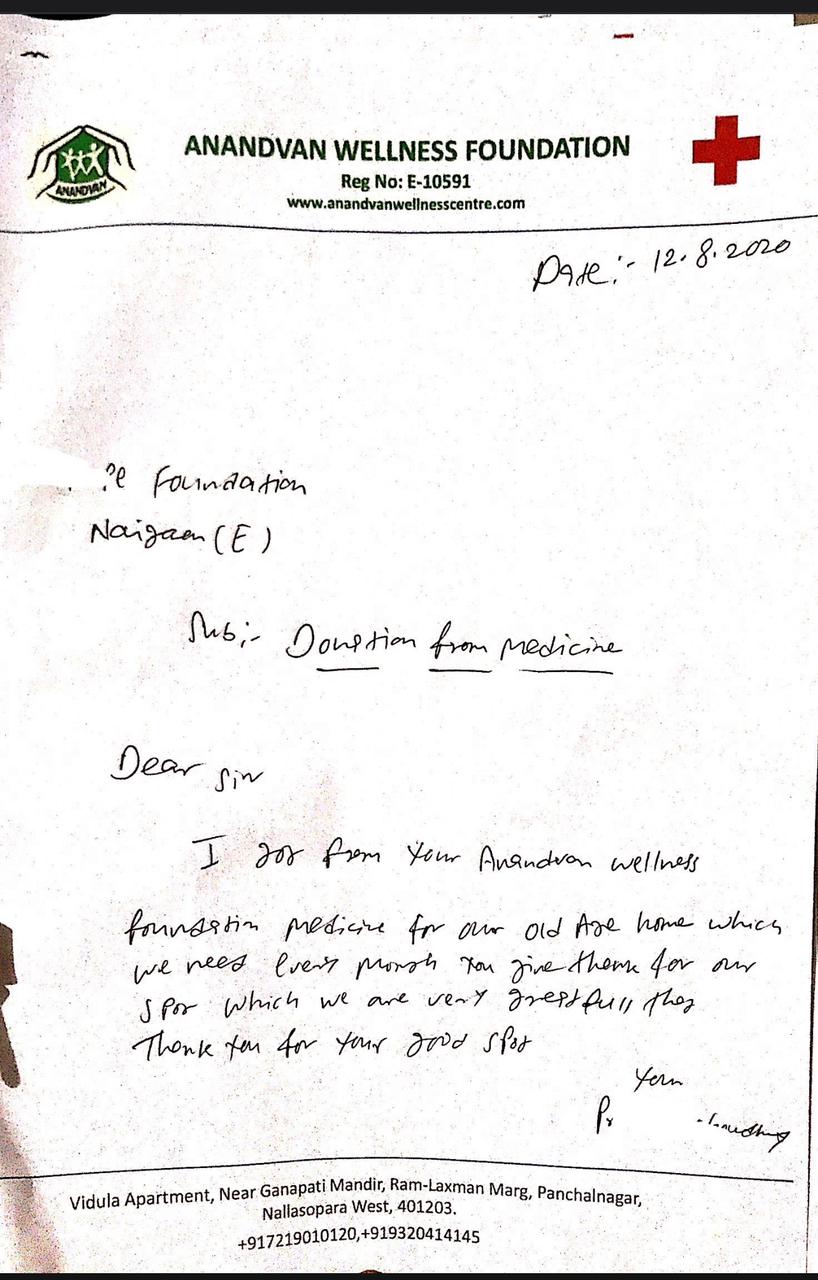 ANANDVAN
ANANDVAN WELLNESS FOUNDATION
Reg No: E-10591
www.anandvanwellnesscentre.com
Date:- 12.8.2020
Foundation
Naigaon (E)
Sub:- Donation from medicine
Dear Sir
I got from your Anandvan wellness
foundation medicine for our old Age home which
we need every month you give them for our
which we are very greatfull
Thank you for your good
Vidula Apartment, Near Ganapati Mandir, Ram-Laxman Marg, Panchalnagar,
Nallasopara West, 401203.
+917219010120,+919320414145